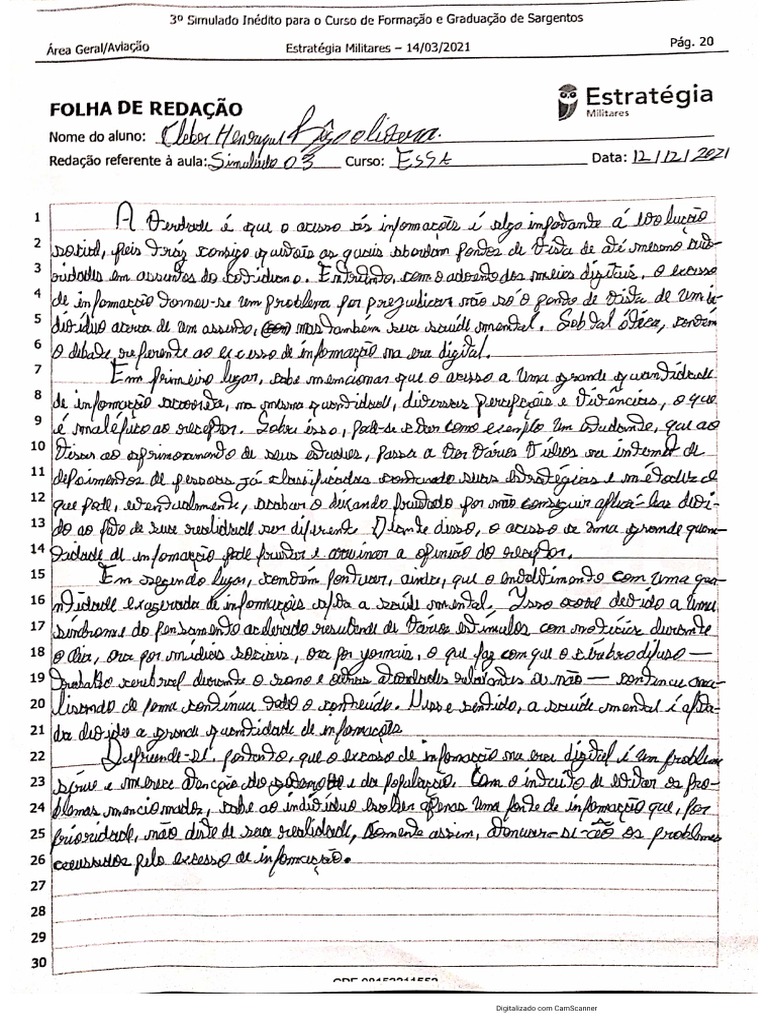 3º Simulado Inédito para o Curso de Formação e Graduação de Sargentos
Área Geral/Aviação
Estratégia Militares – 14/03/2021
Pág. 20
FOLHA DE REDAÇÃO
Estratégia
Militares
Nome do aluno: Kleber Henrique
Redação referente à aula: Simulado 03 Curso: ESSA Data: 12/12/2021
1 A verdade é que o acesso às informações é algo importante á evolução
2 social, pois tráz consigo as quais abordam pontos de vista de até mesmo auto-
3 ridades em assuntos do cotidiano. Entretanto, com o advento dos meios digitais, o excesso
4 de informação tornou-se um problema por prejudicar não só o ponto de vista de um in-
5 divíduo acerca de um assunto, mas também sua saúde mental. Sob tal ótica, convém
6 o debate referente ao excesso de informação na era digital.
7 Em primeiro lugar, cabe mencionar que o acesso a uma grande quantidade
8 de informação acarreta, na mesma quantidade, diversas percepções e vivências, o que
9 é maléfico ao receptor. Sobre isso, pode-se citar como exemplo um estudante, que ao
10 visar ao aprimoramento de seus estudos, passa a ver vários vídeos na internet de
11 depoimentos de pessoas já classificadas contando suas estratégias e métodos o
12 que pode, eventualmente, acabar o deixando frustado por não conseguir aplicá-las devi-
13 do ao fato de sua realidade ser diferente. Diante disso, o acesso a uma grande quan-
14 tidade de informação pode frustar e arruinar a opinião do receptor.
15 Em segundo lugar, convém pontuar, ainda, que o envolvimento com uma qua-
16 ntidade exagerada de informações afeta a saúde mental. Isso ocorre devido a uma
17 síndrome do pensamento acelerado resultante de vários estímulos com notícias durante
18 o dia, ora por mídias sociais, ora por jornais, o que faz com que o cérebro difuso —
19 trabalho cerebral durante o sono e outras atividades relaxantes ou não — continue ana-
20 lisando de forma contínua todo o conteúdo. Nesse sentido, a saúde mental é afeta-
21 da devido a grande quantidade de informações.
22 Depreende-se, portanto, que o excesso de informação na era digital é um problema
23 sério e merece atenção do e da população. Com o intuito de evitar os pro-
24 blemas mencionados, cabe ao indivíduo escolher apenas uma fonte de informação que, por
25 prioridade, não diste de sua realidade, somente assim, atenuar-se-ão os problemas
26 causados pelo excesso de informação.
27
28
29
30
Digitalizado com CamScanner